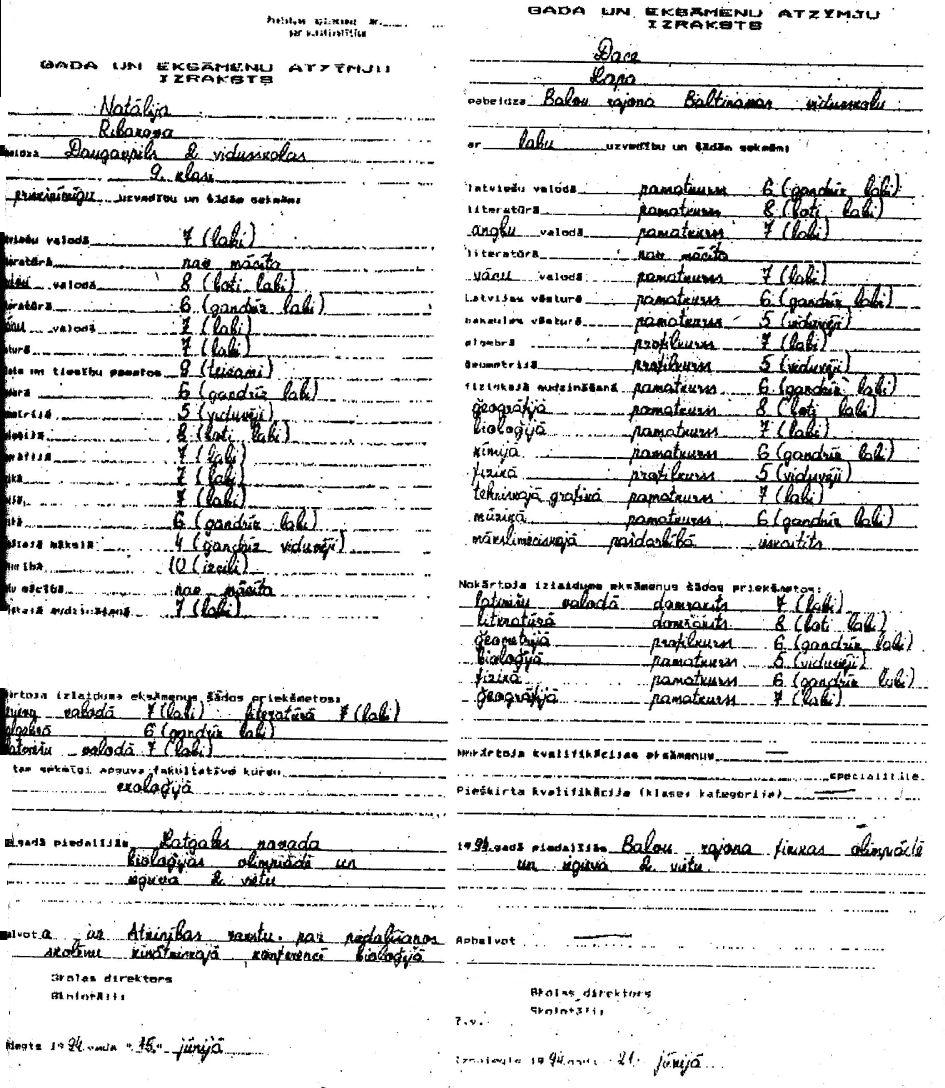 GADA UN EKSĀMENU ATZĪMJU
IZRAKSTS
Natālija
Daugavpils 2. vidusskolas
9. klasi
priekšzīmīgu uzvedību un šādām sekmēm:
valodā 7 (labi)
nav mācīta
valodā 8 (ļoti labi)
6 (gandrīz labi)
valodā 7 (labi)
7 (labi)
un tiesību pamatos 9 (teicami)
6 (gandrīz labi)
5 (viduvēji)
8 (ļoti labi)
7 (labi)
7 (labi)
7 (labi)
6 (gandrīz labi)
mākslā 4 (gandrīz viduvēji)
10 (izcili)
mācībā nav mācīta
audzināšanā 7 (labi)
izlaiduma eksāmenus šādos priekšmetos:
valodā 7 (labi) literatūrā 7 (labi)
algebrā 6 (gandrīz labi)
latviešu valodā 7 (labi)
sekmīgi apguva fakultatīvo kursu
ekoloģijā
gadā piedalījās Latgales novada
bioloģijas olimpiādē un
ieguva 2. vietu
ar Atzinības rakstu par piedalīšanos
skolēnu zinātniskajā konferencē bioloģijā
Skolas direktors
Skolotāji:
1994. gada "15." jūnijā
GADA UN EKSĀMENU ATZĪMJU
IZRAKSTS
Dace
Lapa
pabeidza Balvu rajona Baltinavas vidusskolu
ar labu uzvedību un šādām sekmēm:
latviešu valodā pamatkurss 6 (gandrīz labi)
literatūrā pamatkurss 8 (ļoti labi)
angļu valodā pamatkurss 7 (labi)
literatūrā nav mācīta
vācu valodā pamatkurss 7 (labi)
Latvijas vēsturē pamatkurss 6 (gandrīz labi)
pasaules vēsturē pamatkurss 5 (viduvēji)
algebrā profilkurss 7 (labi)
ģeometrijā profilkurss 5 (viduvēji)
fiziskajā audzināšanā pamatkurss 6 (gandrīz labi)
ģeogrāfijā pamatkurss 8 (ļoti labi)
bioloģijā pamatkurss 7 (labi)
ķīmijā pamatkurss 6 (gandrīz labi)
fizikā profilkurss 5 (viduvēji)
tehniskajā grafikā pamatkurss 7 (labi)
mūzikā pamatkurss 6 (gandrīz labi)
mākslinieciskajā pašdarbībā ieskaitīts
Nokārtoja izlaiduma eksāmenus šādos priekšmetos:
latviešu valodā domraksts 7 (labi)
literatūrā domraksts 8 (ļoti labi)
ģeometrijā profilkurss 6 (gandrīz labi)
bioloģijā pamatkurss 5 (viduvēji)
fizikā pamatkurss 6 (gandrīz labi)
ģeogrāfijā pamatkurss 7 (labi)
Nokārtoja kvalifikācijas eksāmenus —
specialitātē.
Piešķirta kvalifikācija (klase, kategorija) —
1994. gadā piedalījās Balvu rajona fizikas olimpiādē
un ieguva 2. vietu
Apbalvot —
Skolas direktors
Skolotāji:
Z.v.
Izsniegts 1994. gada 21. jūnijā